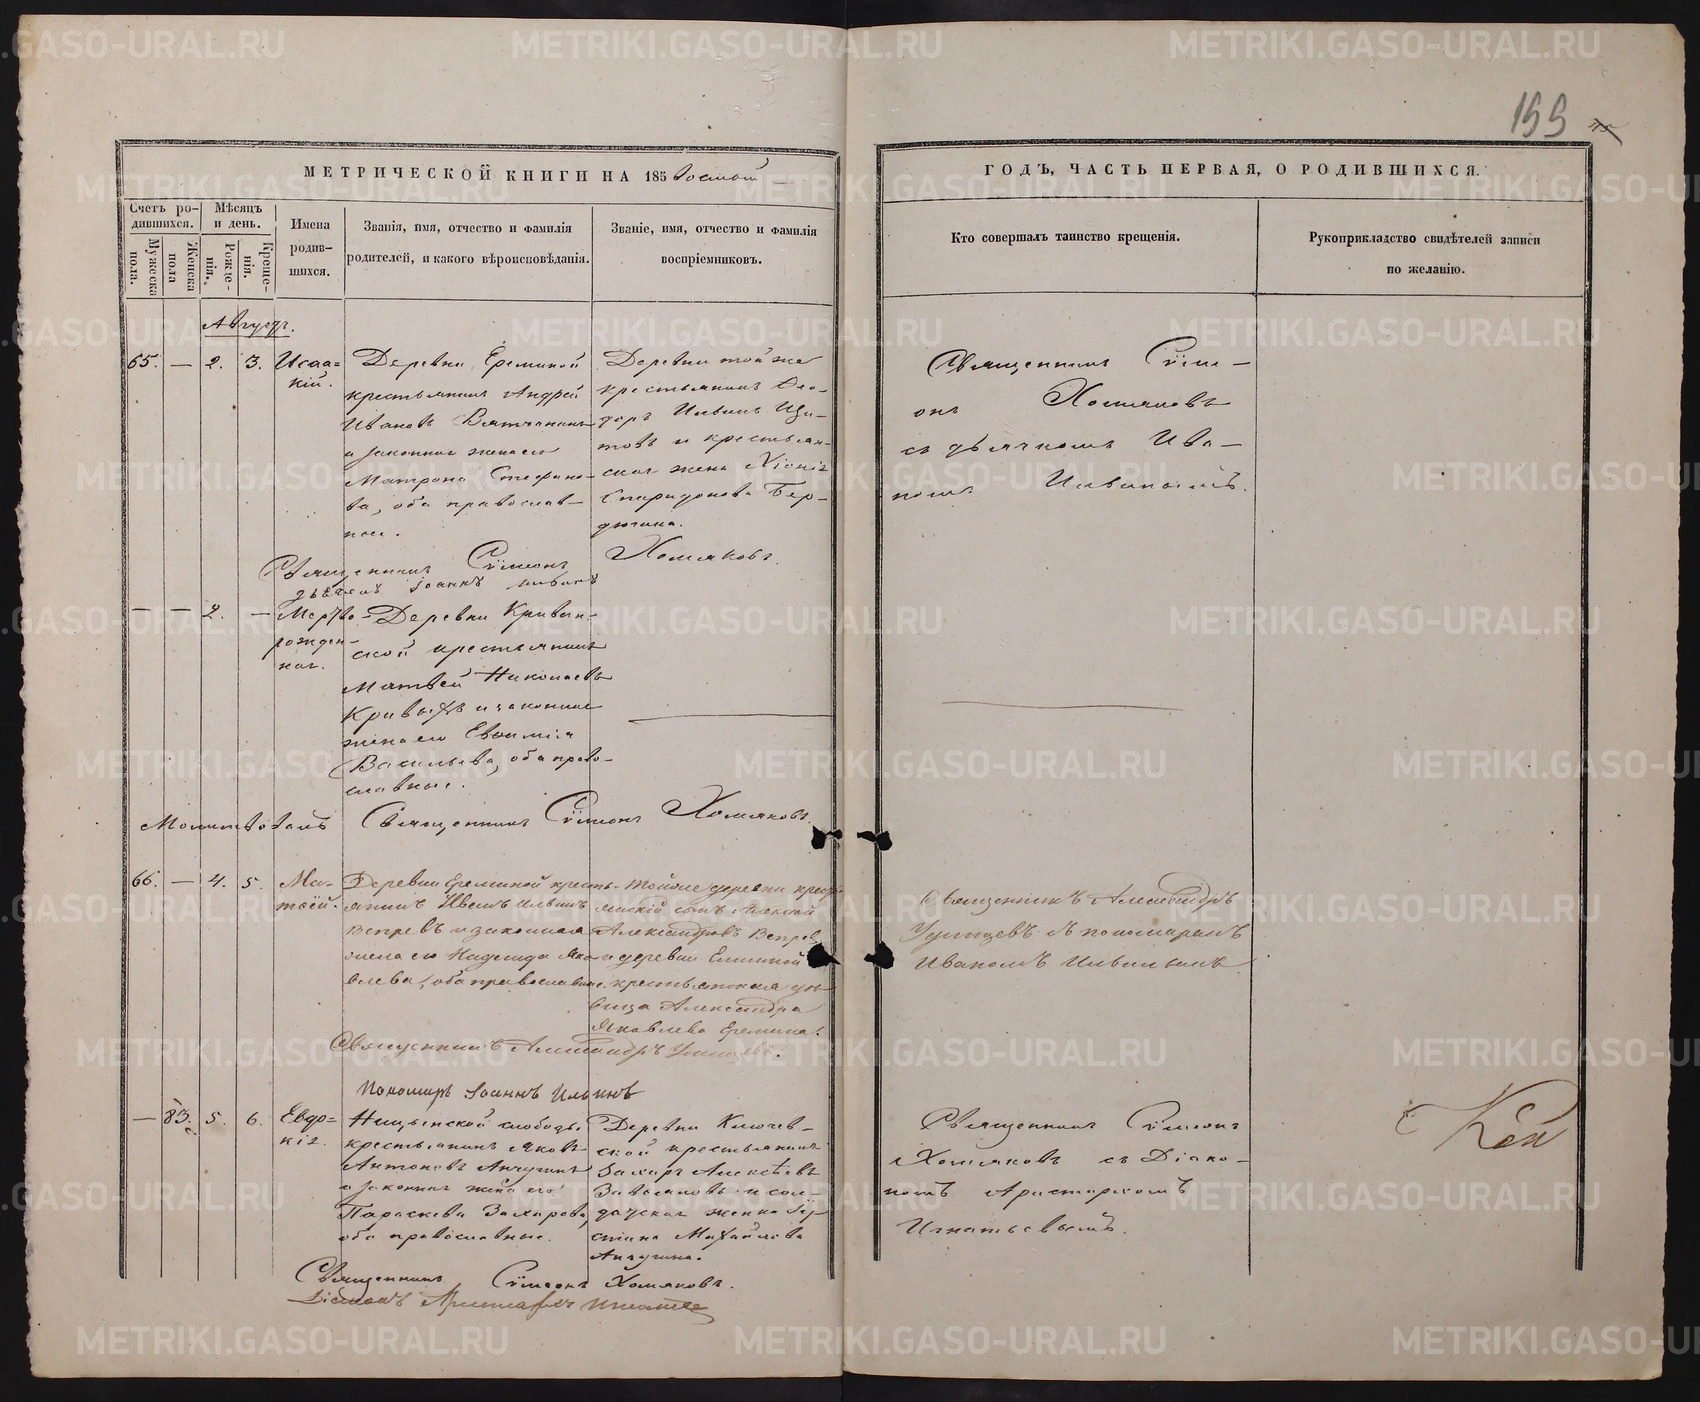 199
45
МЕТРИЧЕСКОЙ КНИГИ НА 185 восьмой
ГОДЪ, ЧАСТЬ ПЕРВАЯ, О РОДИВШИХСЯ.
Счетъ ро-
дившихся.
Мѣсяцъ
и день.
Мужеска
пола.
Женска
пола
Рожде-
нія.
Креще-
нія.
Имена
родив-
шихся.
Званія, имя, отчество и фамилія
родителей, и какого вѣроисповѣданія.
Званіе, имя, отчество и фамилія
воспріемниковъ.
Кто совершалъ таинство крещенія.
Рукоприкладство свидѣтелей записи
по желанію.
Августъ.
65. — 2. 3. Исаа-
кій.
Деревни Ереминой
крестьянинъ Андрей
Ивановъ Вятчанинъ
и законная жена его
Матрона Стефано-
ва, оба православ-
ные.
Деревни той же
крестьянинъ Ѳео-
доръ Ильинъ Щи-
товъ и крестьян-
ская жена Хіонія
Спиридонова Бер-
дюгина.
Священникъ Сѵме-
онъ Хомяковъ
съ дьячкомъ Ива-
номъ Ильинымъ.
Священникъ Сѵмеонъ Хомяковъ.
дьячекъ Іоаннъ Ильинъ
— — 2. — Мертво-
рожден-
ная.
Деревни Кривин-
ской крестьянинъ
Матвей Николаевъ
Кривыхъ и законная
жена его Евѳимія
Васильева, оба право-
славные.
Молитвовалъ Священникъ Сѵмеонъ Хомяковъ.
66. — 4. 5. Ма-
тѳей.
Деревни Ереминой кресть-
янинъ Иванъ Ильинъ
Вепревъ и законная
жена его Надежда Яко-
влева, оба православные.
Тойже деревни кресть
янскій сынъ Алексей
Александровъ Вепревъ
и деревни Еминой
крестьянская дѣ-
вица Александра
Яковлева Еремина.
Священникъ Александръ
Удинцевъ съ пономаремъ
Иваномъ Ильинымъ
Священникъ Александръ Удинцевъ.
Пономарь Іоаннъ Ильинъ
— 83. 5. 6. Евдо-
кія.
Ницынской слободы
крестьянинъ Яковъ
Антоновъ Анчугинъ
и законная жена его
Параскева Захарова,
оба православные.
Деревни Ключев-
ской крестьянинъ
Захаръ Алексѣевъ
Завьяловъ и сол-
датская женка
Михайлова
Анчугина.
Священникъ Сѵмеонъ
Хомяковъ съ Діако-
номъ Аристархомъ
Игнатьевымъ.
Священникъ Сѵмеонъ Хомяковъ.
Діаконъ Аристархъ Игнатьев
METRIKI.GASO-URAL.RU